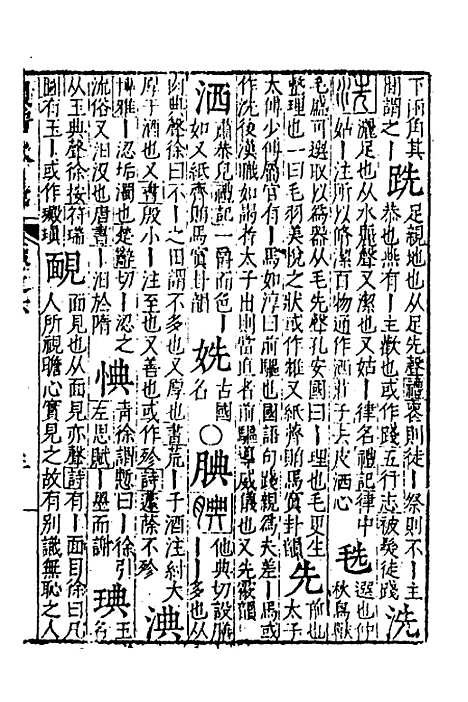 下兩角其
𧣪謂之丨跣足親地也从足先聲禮喪則徒丨祭則不丨主
恭也燕有丨主歡也或作踐五行志被髮徒踐洗
灑足也从水先聲又潔也又姑丨律名禮記律中
姑丨注所以修潔百物通作洒莊子去皮洒心毨選也仲
秋鳥獸
毛盛可選取以爲器从毛先聲孔安國曰丨理也毛更生
整理也一曰毛羽美悅之狀或作㲝又紙齊䬃馬寘卦韻先前也
太子
太傅少傅屬官有丨馬如淳曰前驅也國語句踐親爲夫差丨馬或
作洗後漢職如謁者太子出則當直者前驅導威儀也又先霰韻
洒肅恭皃禮記一爵而色丨
如又紙齊䬃馬寘卦韻姺古國
名○腆他典切設膳
丨丨多也从
肉典聲徐曰不丨之田謂不多也又厚也書荒丨于酒注紂大
厚于酒也又書殷小丨注至也又善也或作殄詩籧篨不殄淟
博雅丨涊垢濁也楚辭切丨涊之
流俗又汨没也唐書丨汩於隋㥏青徐謂慙曰丨徐引
左思賦丨墨而謝琠玉
名
从玉典聲徐按符瑞
圖有玉丨或作㼈瑱靦面見也从面見亦聲詩有丨面目徐曰凡
人所視瞻心實見之故有别識無恥之人